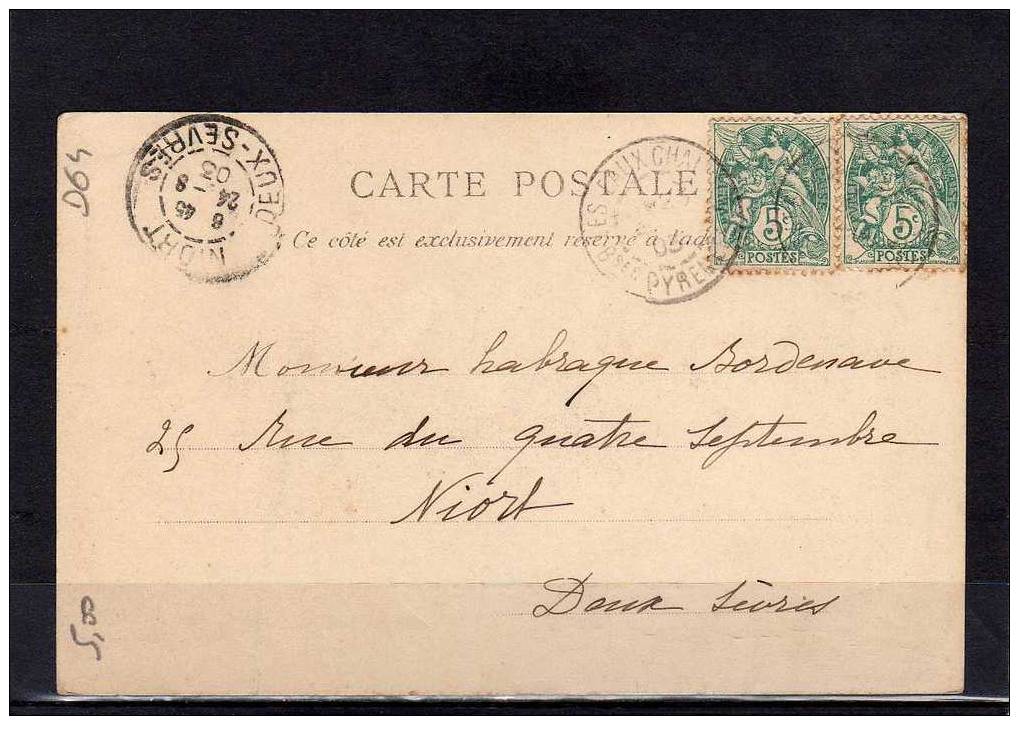 D64
NIORT
DEUX-SEVRES
6 45
24 - 8
03
CARTE POSTALE
Ce côté est exclusivement réservé à l'ad
LES EAUX CHA
BSES PYREN
5c
POSTES
5c
POSTES
Monsieur Labraque Bordenave
25 Rue du quatre Septembre
Niort
Deux Sèvres